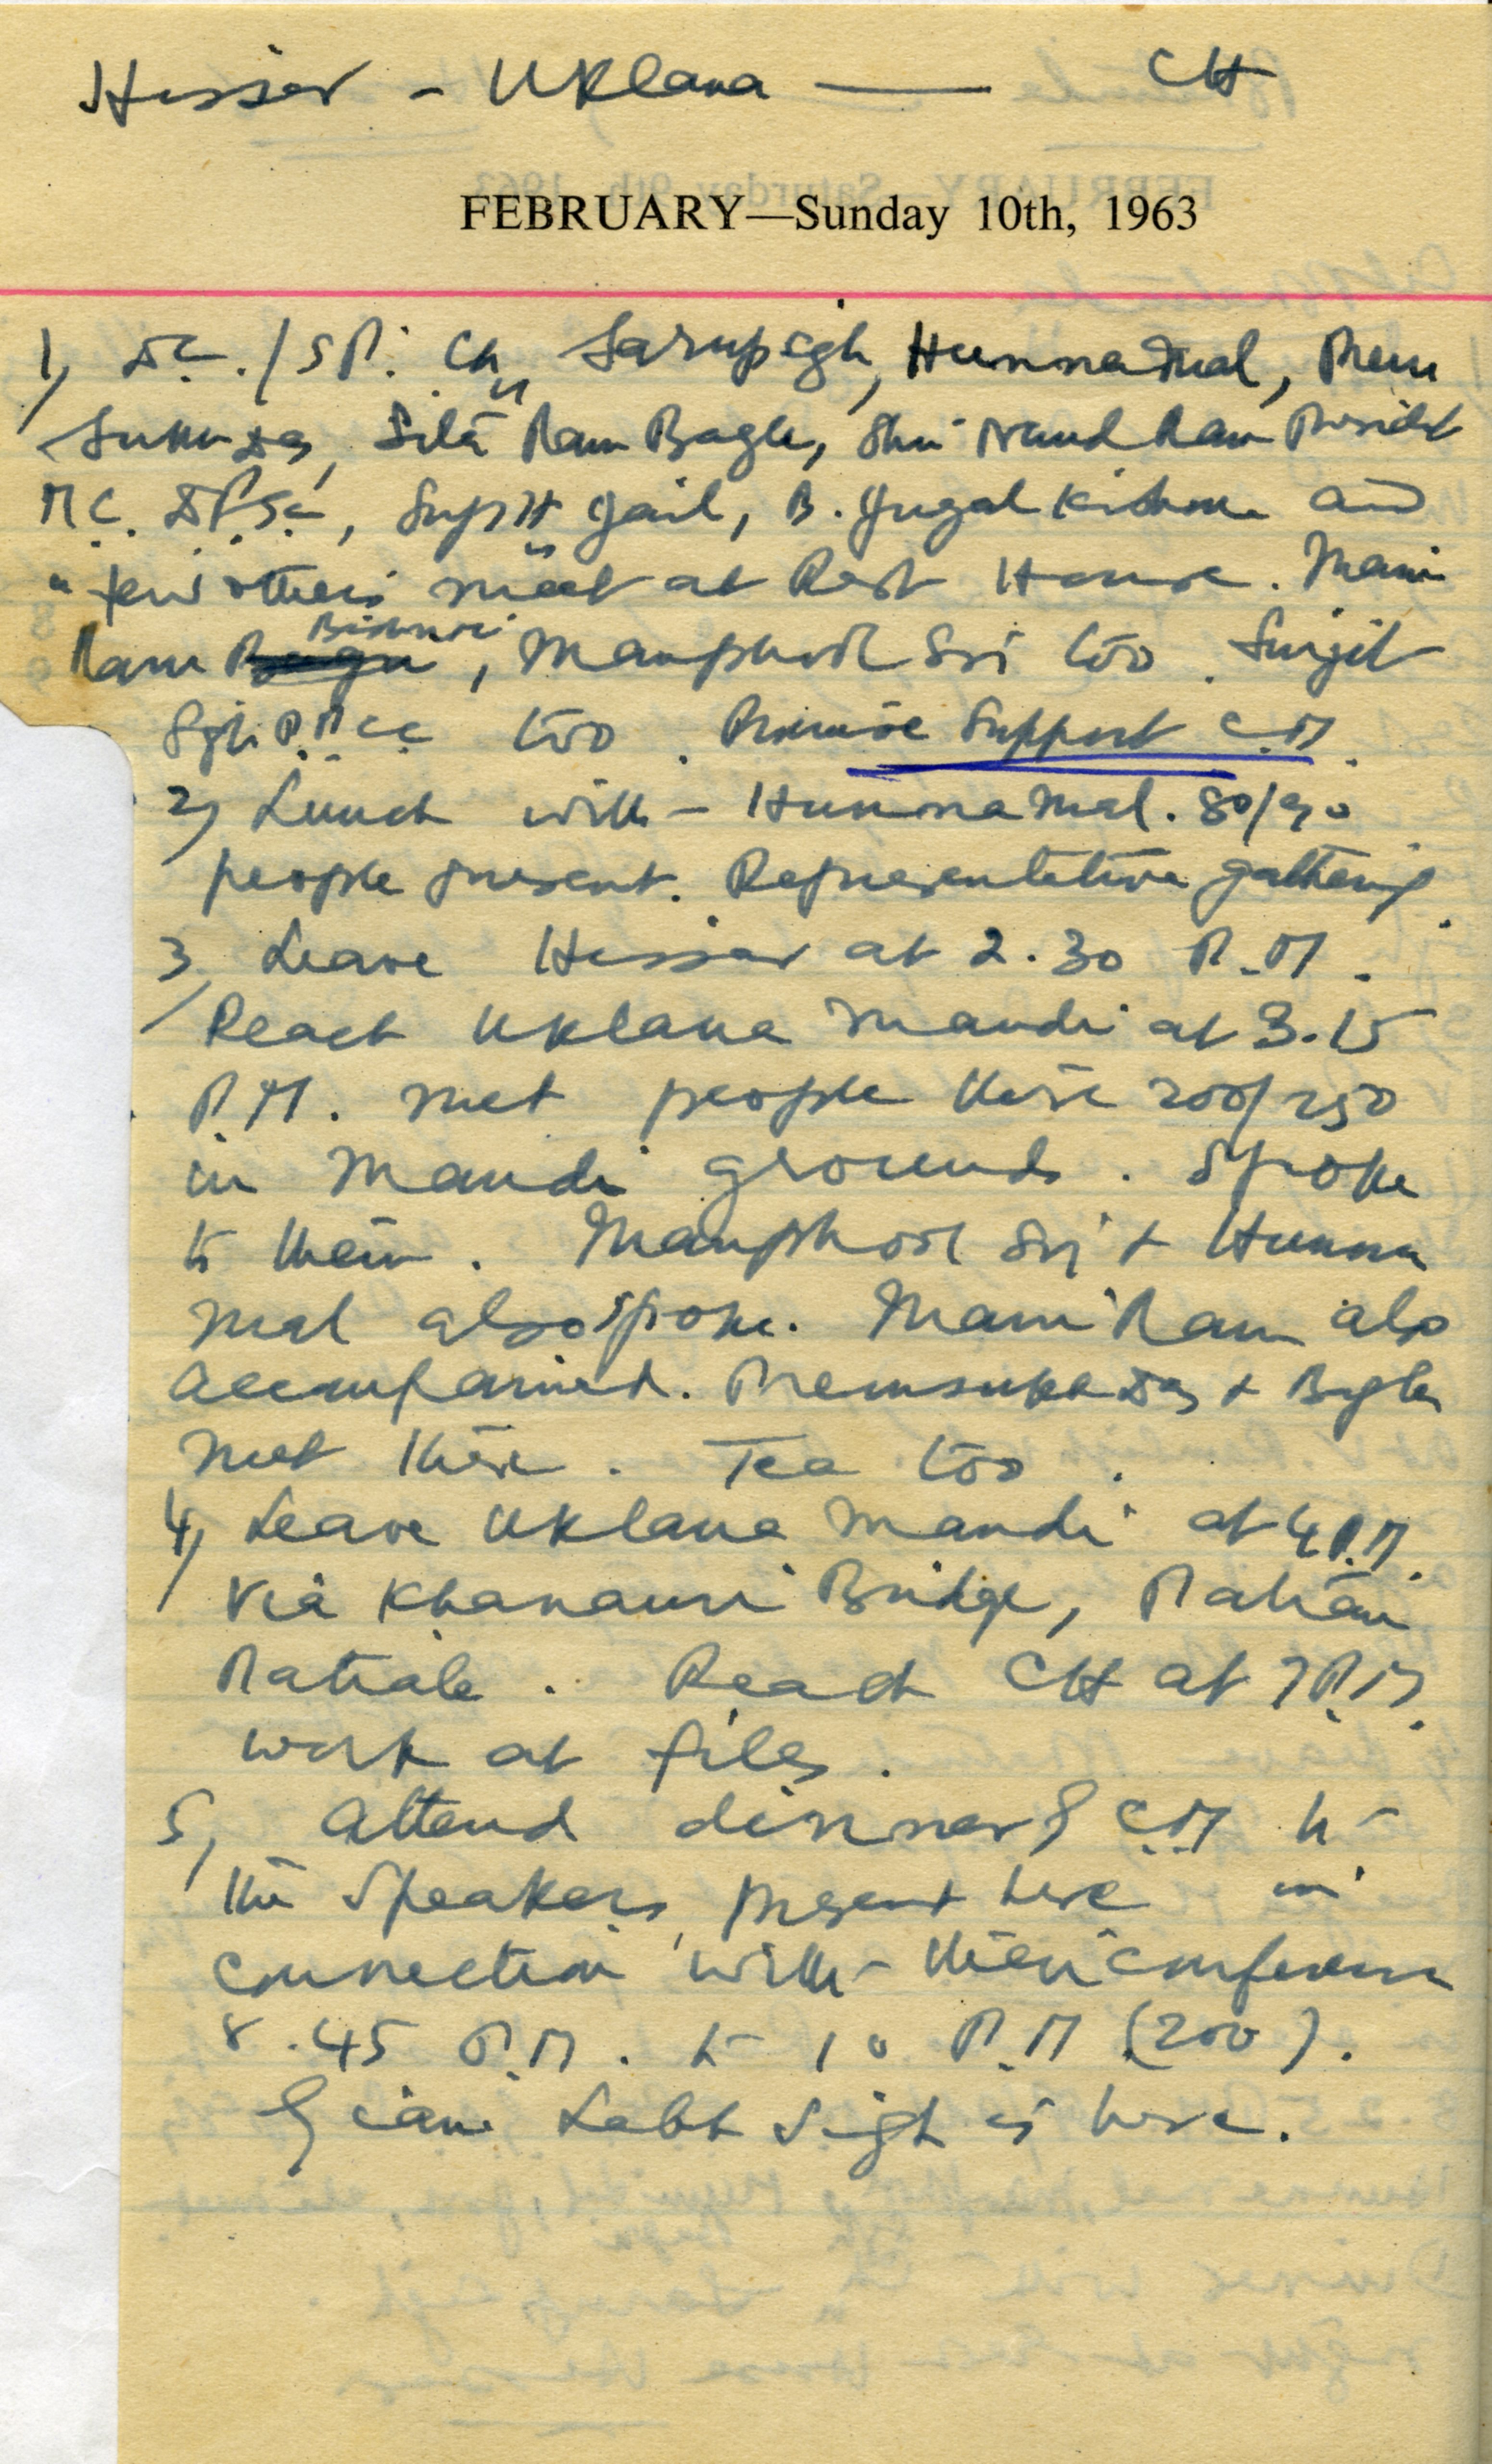 Hissar - Uklana — CH
FEBRUARY—Sunday 10th, 1963
1, DC./SP. Ch. Sarup Sgh, Hunna Mal, Prem
Sukh Das, Sita Ram Bagla, Shri Nand Ram President
M.C. , Supdt Jail, B. Jugal Kishore and
a few others meet at Rest House. Mani
Ram Bishnoi, Manphool Sri too. Surjit
Sgh too. Promise Support C.M.
2, Lunch with - Hunna Mal. 80/90
people present. Representative gathering.
3, Leave Hissar at 2.30 P.M.
Reach Uklana Mandi at 3.15
P.M. Met people there 200/250
in Mandi grounds. Spoke
to them. Manphool Sri + Hunna
Mal also spoke. Mani Ram also
accompanied. Premsukh Das + Bagla
met there. Tea too.
4, Leave Uklana Mandi at 4 P.M.
Via Khanauri Bridge, Patran
Patiala. Reach CH at 7 P.M.
work at files.
5, Attend dinner of C.M. to
the Speakers, present here in
connection with - their conference
8.45 P.M. to 10 P.M (200).
Giani Labh Singh is here.